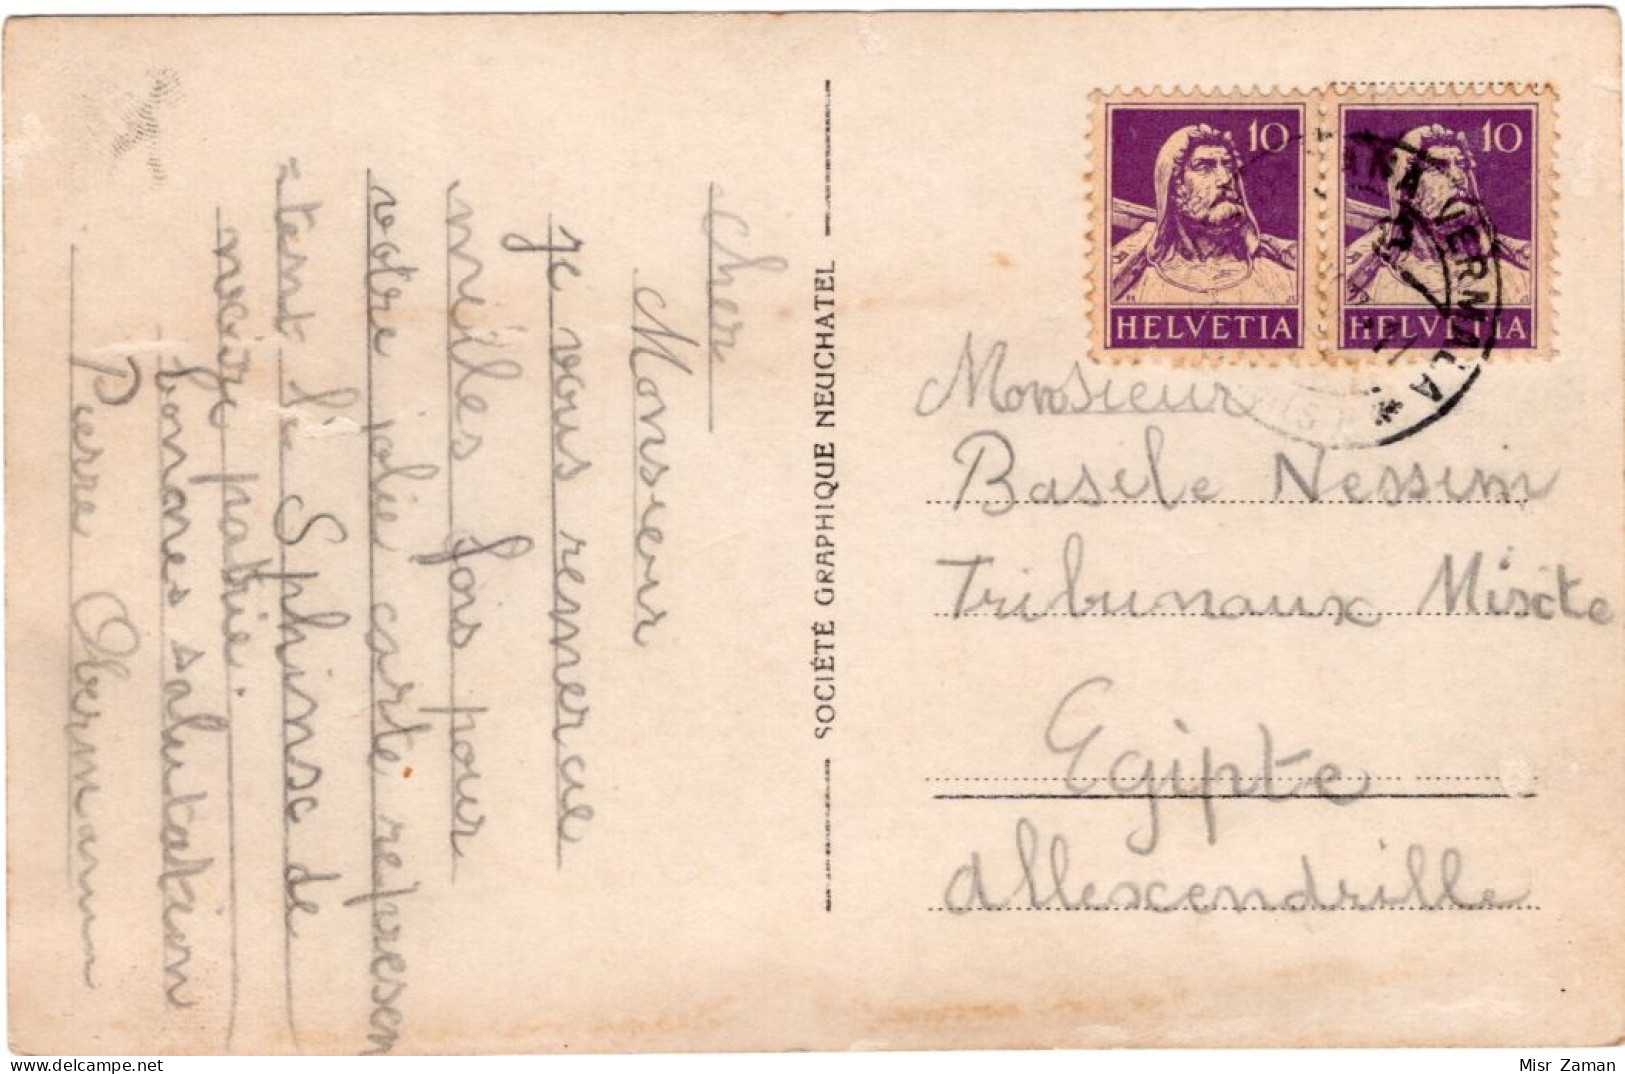 Cher
Monsieur
je vous remercie
mille fois pour
votre jolie carte represen
-tent le Sphinsc de
votre patrie.
bonnes salutation
Pierre Obermann
SOCIÉTÉ GRAPHIQUE NEUCHATEL
10 10
HELVETIA HELVETIA
MONTANA VERMALA
Monsieur
Basile Nessim
Tribunaux Miscte
Egipte
Allescendrille
Misr Zaman